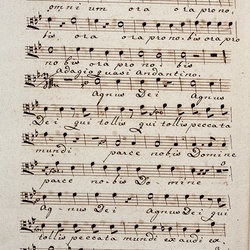 omni um ora ora pro no,
bis ora ora pro no. bis ora pro
no bis ora pro no. bis
Adagio quasi Andantino.
Agnus Dei Agnus
Dei qui tollis qui tollis peccata
mundi parce nobis Domine
parce no bis Do mine
Ag nus Dei Agnus Dei qui
tollis peccata mundi exaudi ex